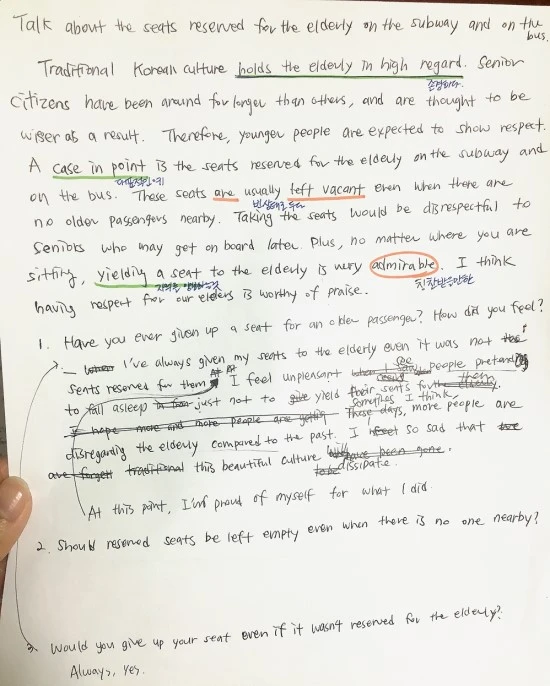 Talk about the seats reserved for the elderly on the subway and on the bus.
Traditional Korean culture holds the elderly in high regard. Senior
존경하다.
citizens have been around for longer than others, and are thought to be
wiser as a result. Therefore, younger people are expected to show respect.
A case in point is the seats reserved for the elderly on the subway and
대표적인 예
on the bus. These seats are usually left vacant even when there are
빈상태로 두다
no older passengers nearby. Taking the seats would be disrespectful to
seniors who may get on board later. Plus, no matter where you are
sitting, yielding a seat to the elderly is very admirable. I think
자리를 양보하는것
칭찬받을만한
having respect for our elders is worthy of praise.
1. Have you ever given up a seat for an older passenger? How did you feel?
I've always given my seats to the elderly even it was not
seats reserved for them. I feel unpleasant see people pretending
to fall asleep just not to yield their seats for them.
Sometimes I think,
These days, more people are
disregarding the elderly compared to the past. I feel so sad that
this beautiful culture
dissipate.
At this point, I'm proud of myself for what I did.
2. Should reserved seats be left empty even when there is no one nearby?
3. Would you give up your seat even if it wasn't reserved for the elderly?
Always, yes.